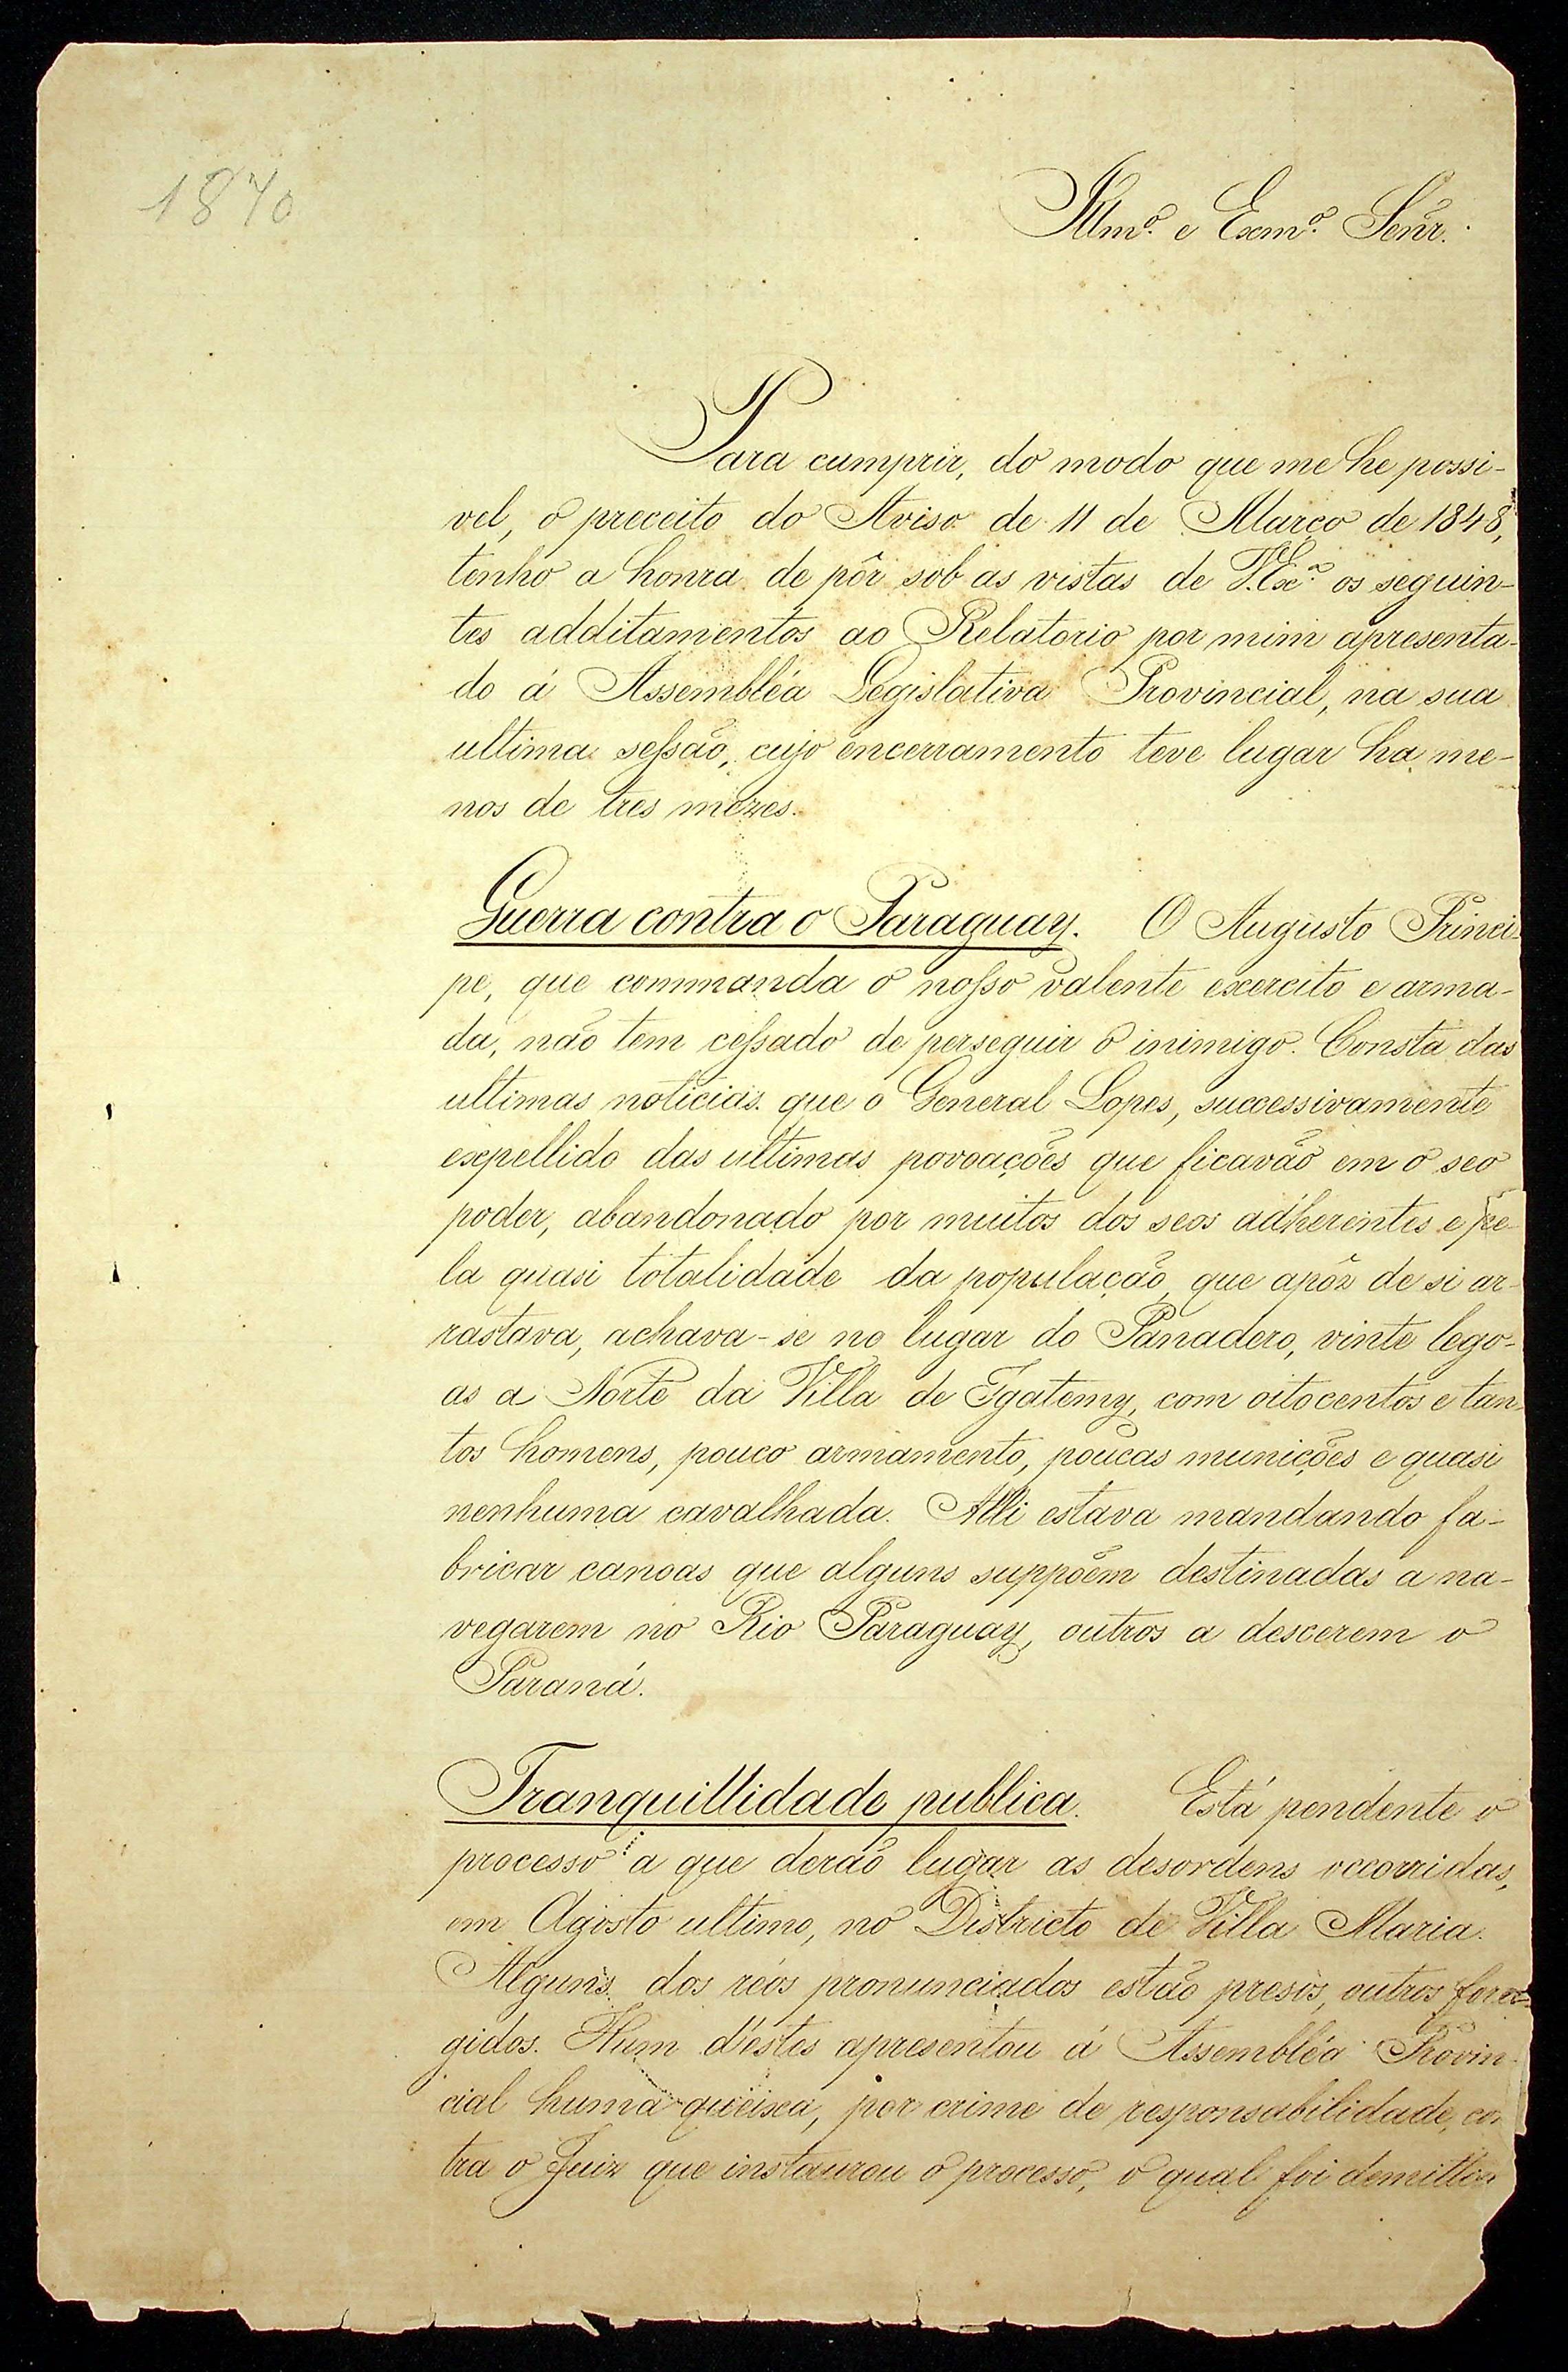 1870
Illmº. e Exmº. Senr.
Para cumprir, do modo que me he possi-
vel, o preceito do Aviso de 11 de Março de 1848,
tenho a honra de pôr sob as vistas de V.Exª. os seguin-
tes additamentos ao Relatorio por mim apresenta-
do á Assembléa Legislativa Provincial, na sua
ultima seſsão, cujo encerramento teve lugar ha me-
nos de tres mezes.
Guerra contra o Paraguay. O Augusto Princi-
pe, que commanda o noſso valente exercito e arma-
da, não tem ceſsado de perseguir o inimigo. Consta das
ultimas noticias que o General Lopes, successivamente
expellido das ultimas povoações que ficavão em o seo
poder, abandonado por muitos dos seos adherentes e pe-
la quasi totalidade da população, que apôz de si ar-
rastava, achava-se no lugar do Panadero, vinte lego-
as a Norte da Villa de Igatemy, com oitocentos e tan-
tos homens, pouco armamento, poucas munições e quasi
nenhuma cavalhada. Alli estava mandando fa-
bricar canoas que alguns suppõem destinadas a na-
vegarem no Rio Paraguay, outros a descerem o
Paraná.
Tranquillidade publica. Está pendente o
processo a que derão lugar as desordens occorridas,
em Agosto ultimo, no Districto de Villa Maria.
Alguns dos réos pronunciados estão presos, outros fora-
gidos. Hum d'estes apresentou á Assembléa Provin-
cial huma queixa, por crime de responsabilidade, con
tra o Juiz que instaurou o processo, o qual foi